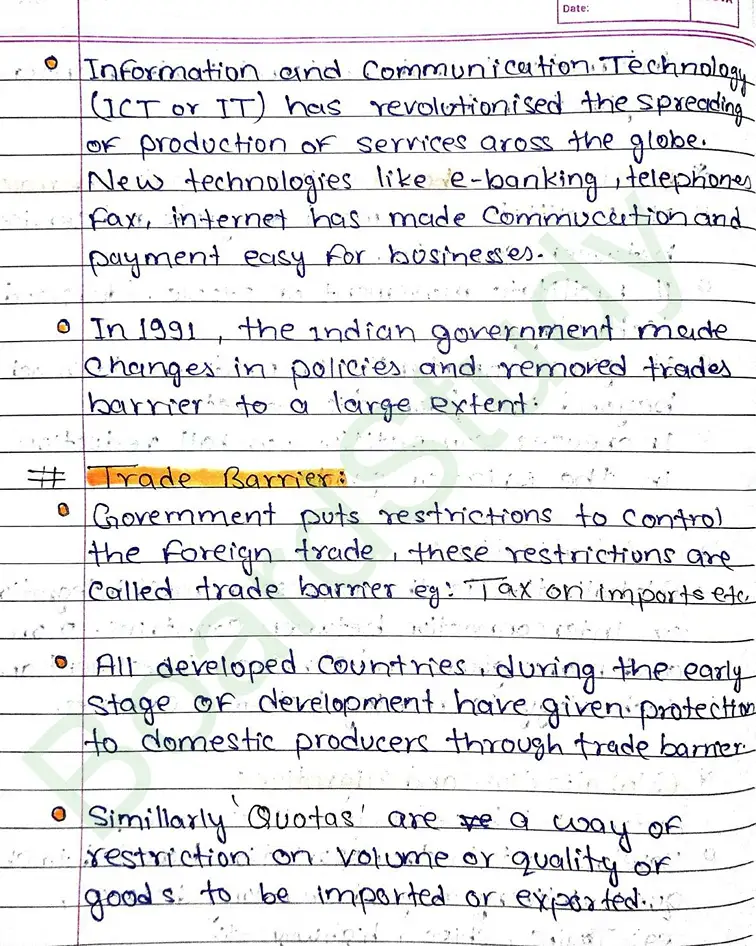 Date:
Information and Communication Technology
(ICT or IT) has revolutionised the spreading
of production of services aross the globe.
New technologies like e-banking, telephones
fax, internet has made Commucution and
payment easy for businesses.
In 1991, the indian government made
changes in policies and removed trades
barrier to a large extent.
# Trade Barrier:
Government puts restrictions to control
the foreign trade, these restrictions are
called trade barrier eg: Tax on imports etc.
All developed countries, during the early
stage of development have given protection
to domestic producers through trade barrier
Simillarly 'Quotas' are a way of
restriction on volume or quality of
goods to be imported or exported.
BoardStudy